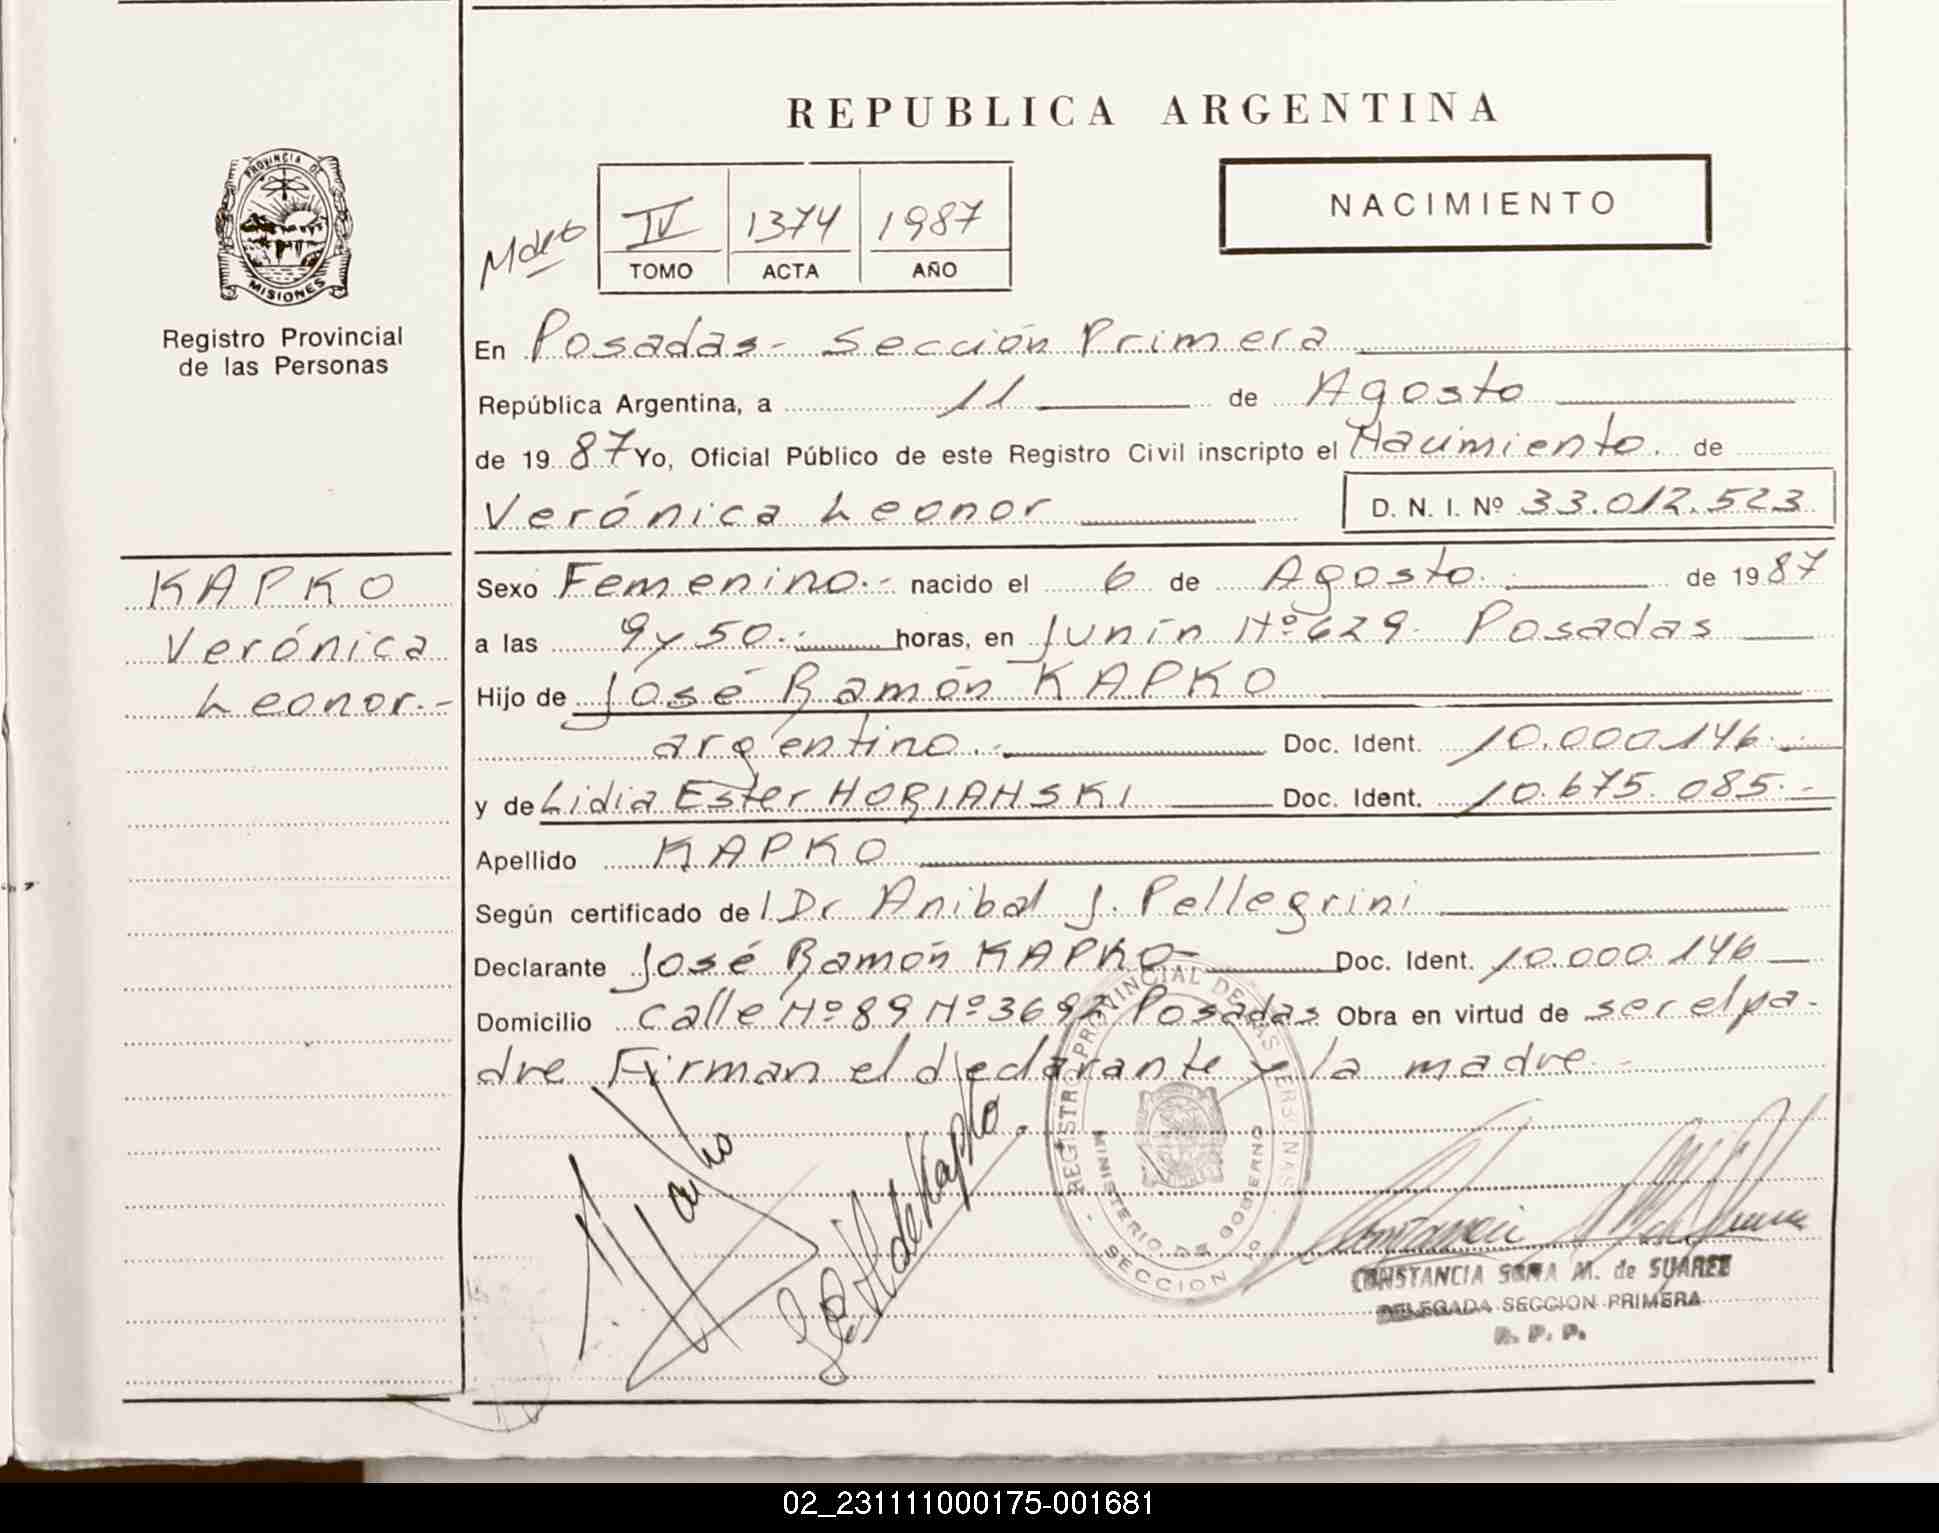 REPUBLICA ARGENTINA
PROVINCIA DE
MISIONES
Registro Provincial
de las Personas
NACIMIENTO
IV 1374 1987
TOMO ACTA AÑO
En Posadas - Sección Primera
República Argentina, a 11 de Agosto
de 1987 Yo, Oficial Público de este Registro Civil inscripto el Nacimiento. de
Verónica Leonor D. N. I. Nº 33.012.523
KAPKO
Verónica
Leonor.-
Sexo Femenino.- nacido el 6 de Agosto. de 1987
a las 9 y 50.- horas, en Junín Nº 629. Posadas
Hijo de José Ramón KAPKO
argentino.- Doc. Ident. 10.000.146.-
y de Lidia Ester HORIANSKI Doc. Ident. 10.675.085.-
Apellido KAPKO
Según certificado del Dr Anibal J. Pellegrini
Declarante José Ramón KAPKO- Doc. Ident. 10.000.146
Domicilio calle Nº 89 Nº 3692 Posadas Obra en virtud de ser el pa-
dre Firman el declarante y la madre.-
REGISTRO PROVINCIAL DE LAS PERSONAS
MINISTERIO DE GOBIERNO
SECCION 1º
de Kapko
CONSTANCIA SONA M. de SUAREZ
DELEGADA SECCION PRIMERA
R. P. P.
02_231111000175-001681